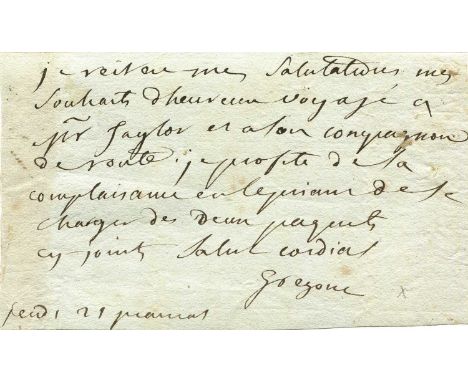 je reitere mes Salutations mes
Souhaits d'heureux voyage a
Mr Taylor et a son compagnon
de route. je profite de sa
complaisance en le priant de se
charger des deux paquets
cy joints Salut cordial
Gregoire
jeudi 21 prairial